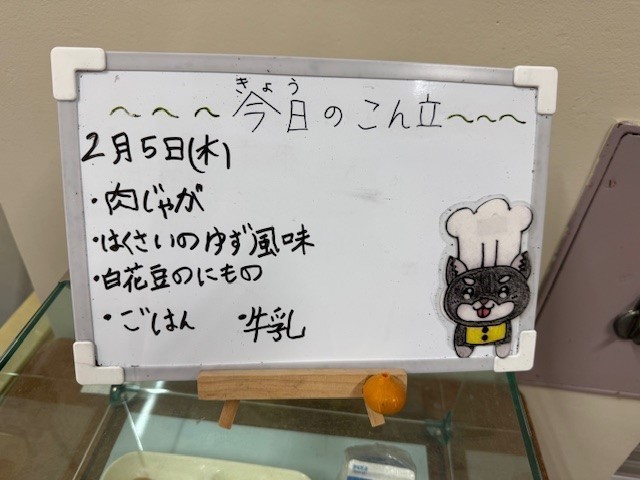 ～～～今日のこん立～～～
きょう
2月5日(水)
・肉じゃが
・はくさいのゆず風味
・白花豆のにもの
・ごはん ・牛乳